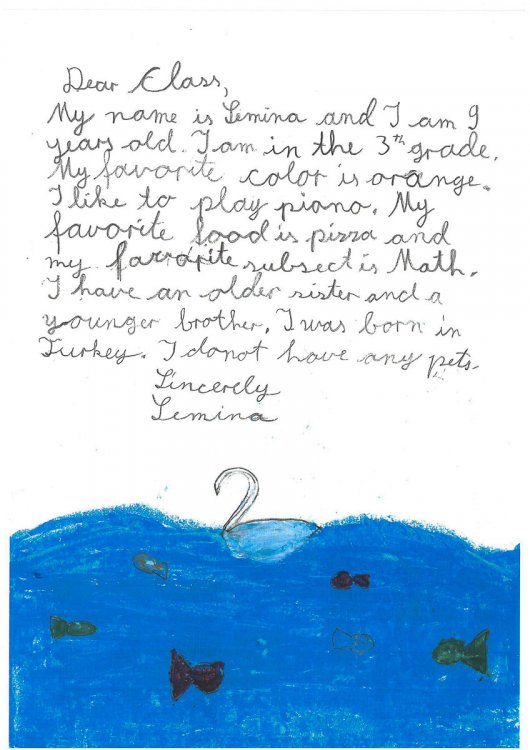 Dear Class,
My name is Semina and I am 9
years old. I am in the 3th grade.
My favorite color is orange.
I like to play piano. My
favorite food is pizza and
my favorite subsect is Math.
I have an older sister and a
younger brother. I was born in
Turkey. I donot have any pets.
Sincerely
Semina